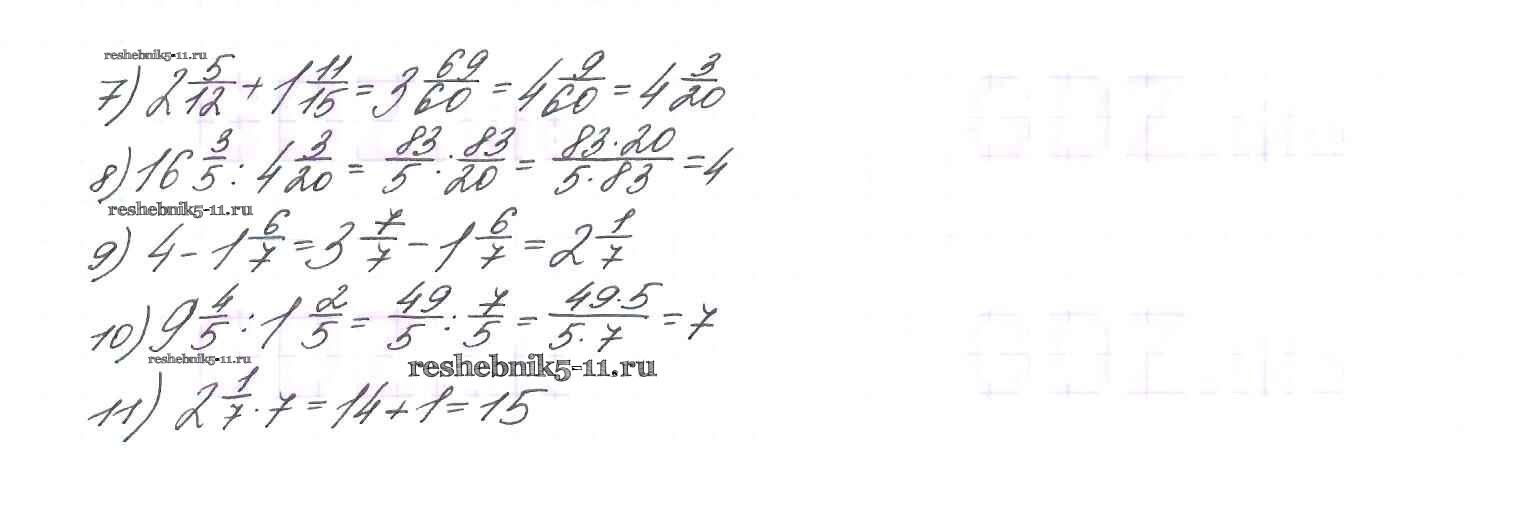 reshebnik5-11.ru
7) 2 5/12 + 1 11/15 = 3 69/60 = 4 9/60 = 4 3/20
8) 16 3/5 : 4 3/20 = 83/5 : 83/20 = 83·20/5·83 = 4
reshebnik5-11.ru
9) 4 - 1 6/7 = 3 7/7 - 1 6/7 = 2 1/7
10) 9 4/5 : 1 2/5 = 49/5 : 7/5 = 49·5/5·7 = 7
reshebnik5-11.ru
reshebnik5-11.ru
11) 2 1/7 · 7 = 14 + 1 = 15